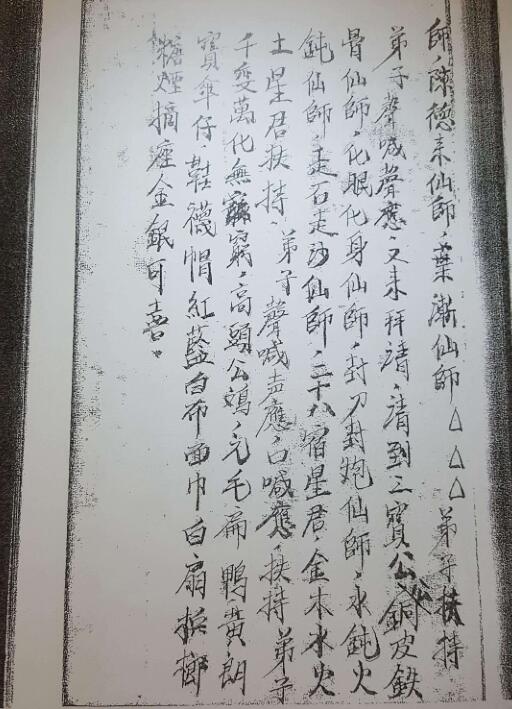 師、陳德来仙師、葉漸仙師△△△弟子扶持
弟子聲喊聲應、又来拜請、請到三寶公公銅皮鉄
骨仙師、化眼化身仙師、封刀封炮仙師、水鈍火
鈍仙師、走石走沙仙師、二十八宿星君、金木水火
土星君扶持、弟子聲喊声應、口喊應、扶持弟子
千变萬化無窮、高頭公鳮、元毛扁鴨、黄朗
寶傘仔、鞋襪帽紅藍白布面巾白扇梹榔
糖烟摘座金銀可喜。